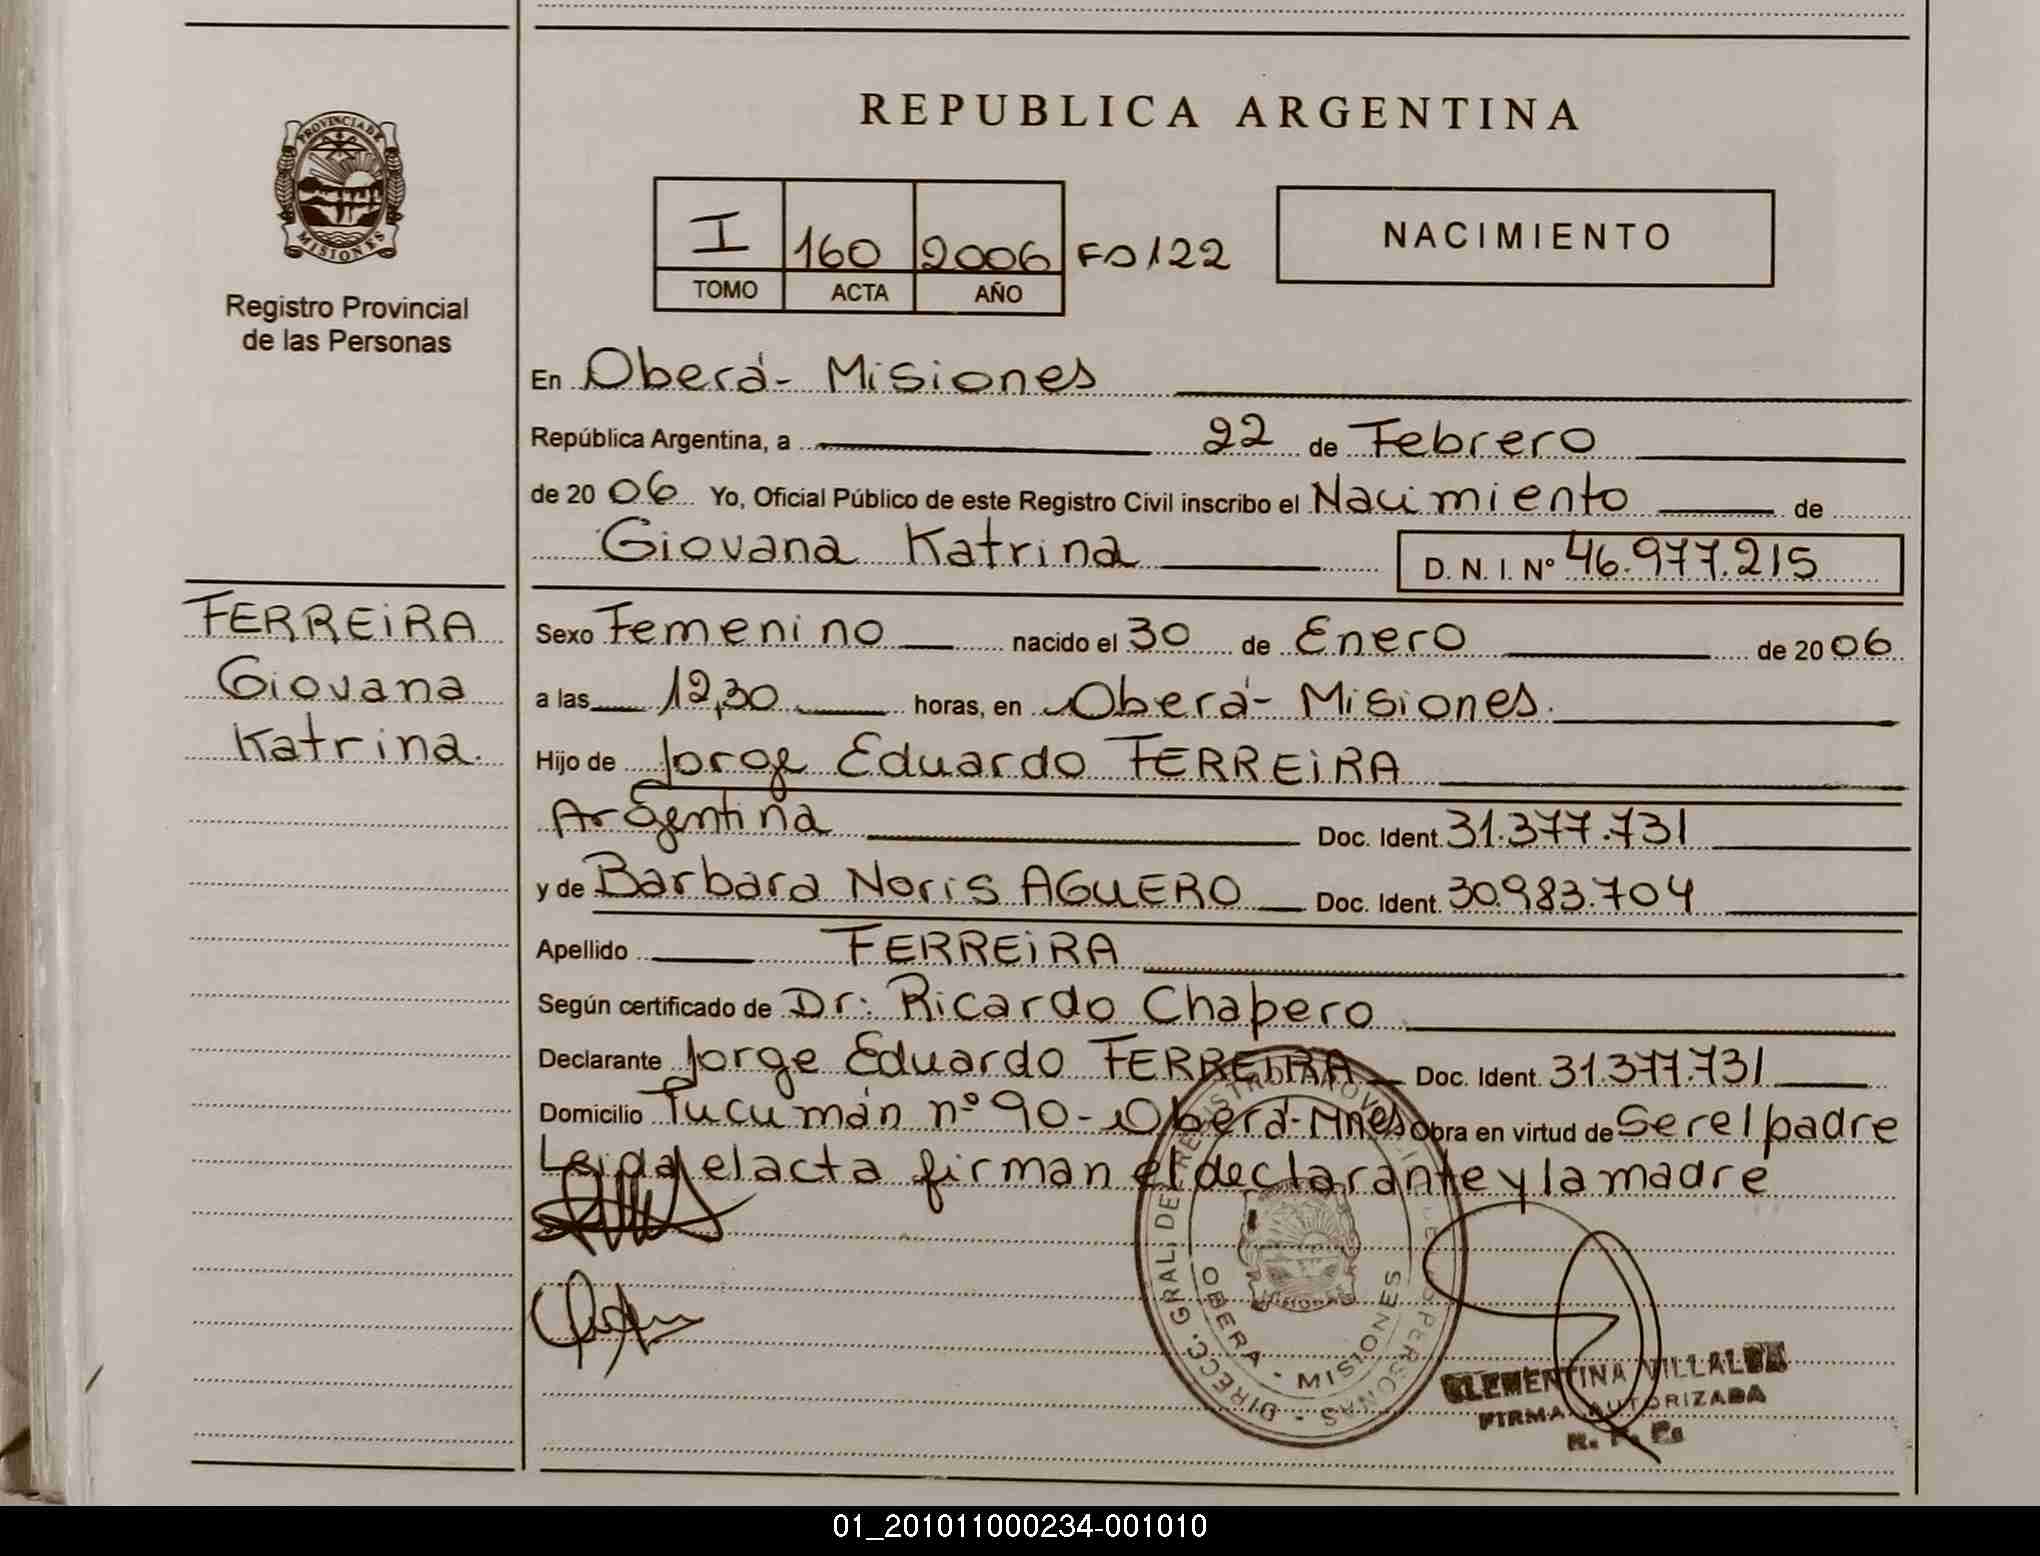 REPUBLICA ARGENTINA
PROVINCIA DE
MISIONES
Registro Provincial
de las Personas
I 160 2006 Fº 122
TOMO ACTA AÑO
NACIMIENTO
En Oberá - Misiones
República Argentina, a 22 de Febrero
de 20 06 Yo, Oficial Público de este Registro Civil inscribo el Nacimiento de
Giovana Katrina D. N. I. Nº 46.977.215
FERREiRA
Giovana
Katrina.
Sexo Femenino nacido el 30 de Enero de 20 06
a las 12,30 horas, en Oberá - Misiones.
Hijo de Jorge Eduardo FERREiRA
Argentina Doc. Ident. 31.377.731
y de Barbara Noris AGUERO Doc. Ident. 30.983.704
Apellido FERREiRA
Según certificado de Dr: Ricardo Chapero
Declarante Jorge Eduardo FERREIRA Doc. Ident. 31.377.731
Domicilio Tucumán nº 90 - Oberá - Mnes Obra en virtud de Ser el padre
Leida el acta firman el declarante y la madre
DIRECC. GRAL. DE REGISTRO PROVINCIAL DE LAS PERSONAS -
OBERA - MISIONES
CLEMENTINA VILLALBA
FIRMA AUTORIZADA
R. P. P.
01_201011000234-001010